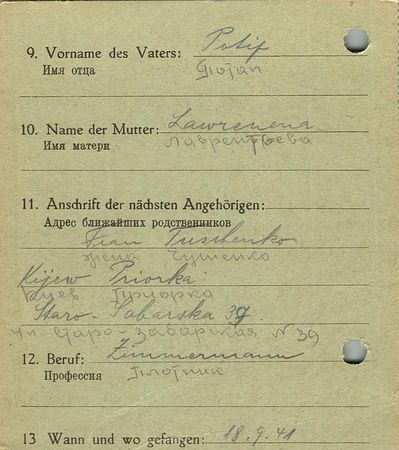 9. Vorname des Vaters: Potif
Имя отца
10. Name der Mutter: Lawrenena
Имя матери Лаврентьева
11. Anschrift der nächsten Angehörigen:
Адрес ближайших родственников
Frau Tuschenko
жена
Kijew Priorka
Киев Приорка
Staro-Sabarska 39
ул. Старо-Забарская N 39
12. Beruf: Zimmermann
Профессия Плотник
13 Wann und wo gefangen: 18.9.41